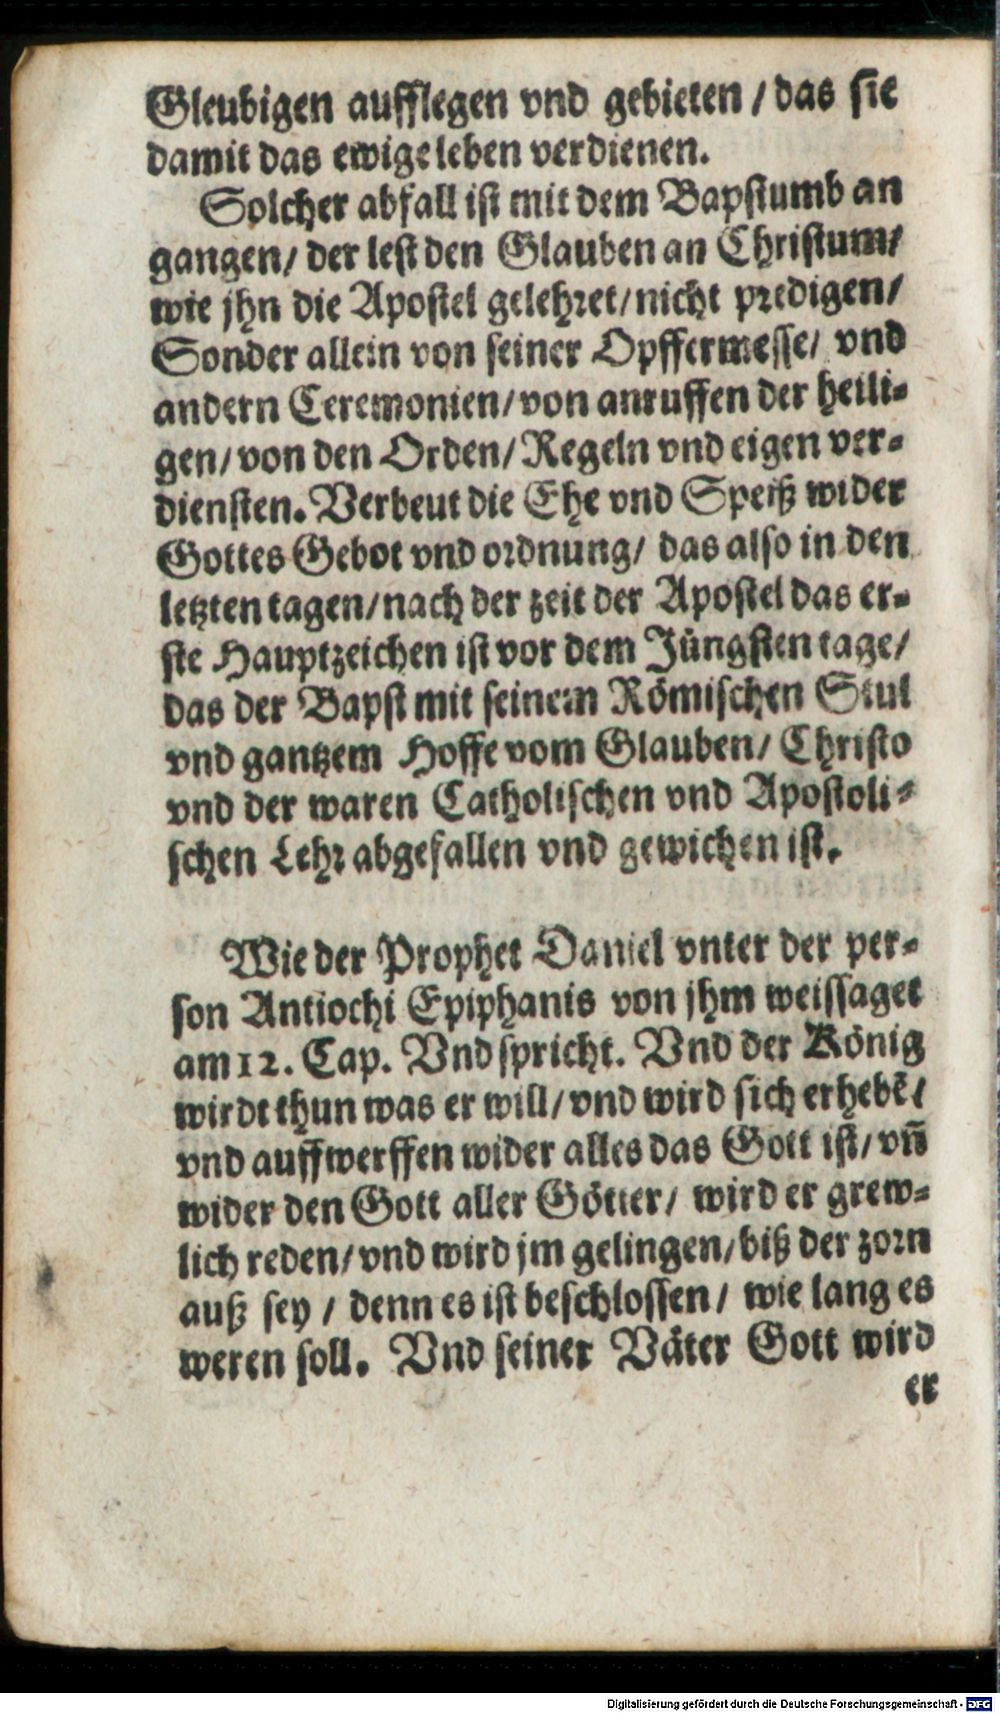 Gleubigen aufflegen vnd gebieten / das sie
damit das ewige leben verdienen.
Solcher abfall ist mit dem Bapstumb an
gangen/ der lest den Glauben an Christum/
wie jhn die Apostel gelehret/ nicht predigen/
Sonder allein von seiner Opffermesse/ vnd
andern Ceremonien/ von anruffen der heili-
gen/ von den Orden/ Regeln vnd eigen ver-
diensten. Verbeut die Ehe vnd Speiß wider
Gottes Gebot vnd ordnung/ das also in den
letzten tagen/ nach der zeit der Apostel das er-
ste Hauptzeichen ist vor dem Jüngsten tage/
das der Bapst mit seinem Römischen Stul
vnd gantzem Hoffe vom Glauben/ Christo
vnd der waren Catholischen vnd Apostoli-
schen Lehr abgefallen vnd gewichen ist.
Wie der Prophet Daniel vnter der per-
son Antiochi Epiphanis von jhm weissaget
am 12. Cap. Vnd spricht. Vnd der König
wirdt thun was er will/ vnd wird sich erhebẽ/
vnd auffwerffen wider alles das Gott ist/ vñ
wider den Gott aller Götter/ wird er grew-
lich reden/ vnd wird jm gelingen/ biß der zorn
auß sey / denn es ist beschlossen/ wie lang es
weren soll. Vnd seiner Väter Gott wird
er
Digitalisierung gefördert durch die Deutsche Forschungsgemeinschaft - DFG